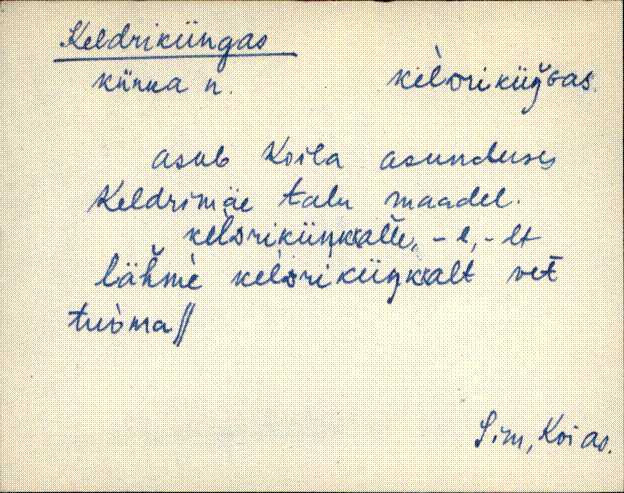 Keldriküngas
künka n. kèlᴅriküŋ̆ɢas.
asub Koila asunduses
Keldrimäe talu maadel.
kèlᴅriküŋkalle, -l, -lt
lähme kèlᴅriküŋkalt vet
tuòma //
Sim, Koi as.